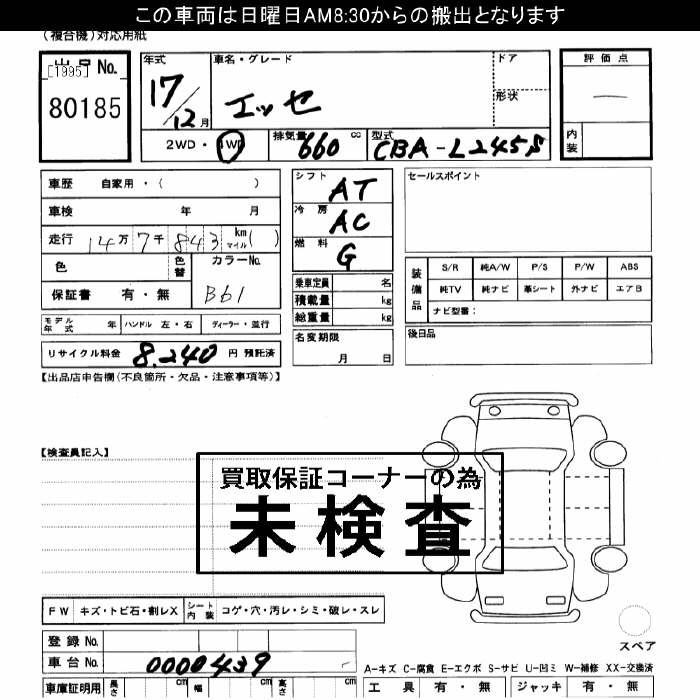 この車両は日曜日AM8:30からの搬出となります
(複合機)対応用紙
[1995] No.
80185
年式 車名・グレード ドア 評価点
17/12月 エッセ 形状 —
2WD・4WD 排気量 660 cc 型式 CBA-L245S 内装
車歴 自家用・( )
車検 年 月
走行 14万7千843 km マイル ( )
色 色替 カラーNo.
保証書 有・無 B61
モデル年式 年 ハンドル 左・右 ディーラー・並行
リサイクル料金 8.240 円 預託済
シフト AT
冷房 AC
燃料 G
乗車定員 名
積載量 kg
総重量 kg
名変期限
月 日
セールスポイント
装備品 S/R 純A/W P/S P/W ABS
純TV 純ナビ 革シート 外ナビ エアB
ナビ型番:
後日品
【出品店申告欄(不良箇所・欠品・注意事項等)】
【検査員記入】
買取保証コーナーの為
未検査
FW キズ・トビ石・割レX シート内装 コゲ・穴・汚レ・シミ・破レ・スレ
登録No.
車台No. 0000439
車庫証明用 長さ cm 幅 cm 高さ cm
スペア
A-キズ C-腐食 E-エクボ S-サビ U-凹ミ W-補修 XX-交換済
工具 有・無 ジャッキ 有・無